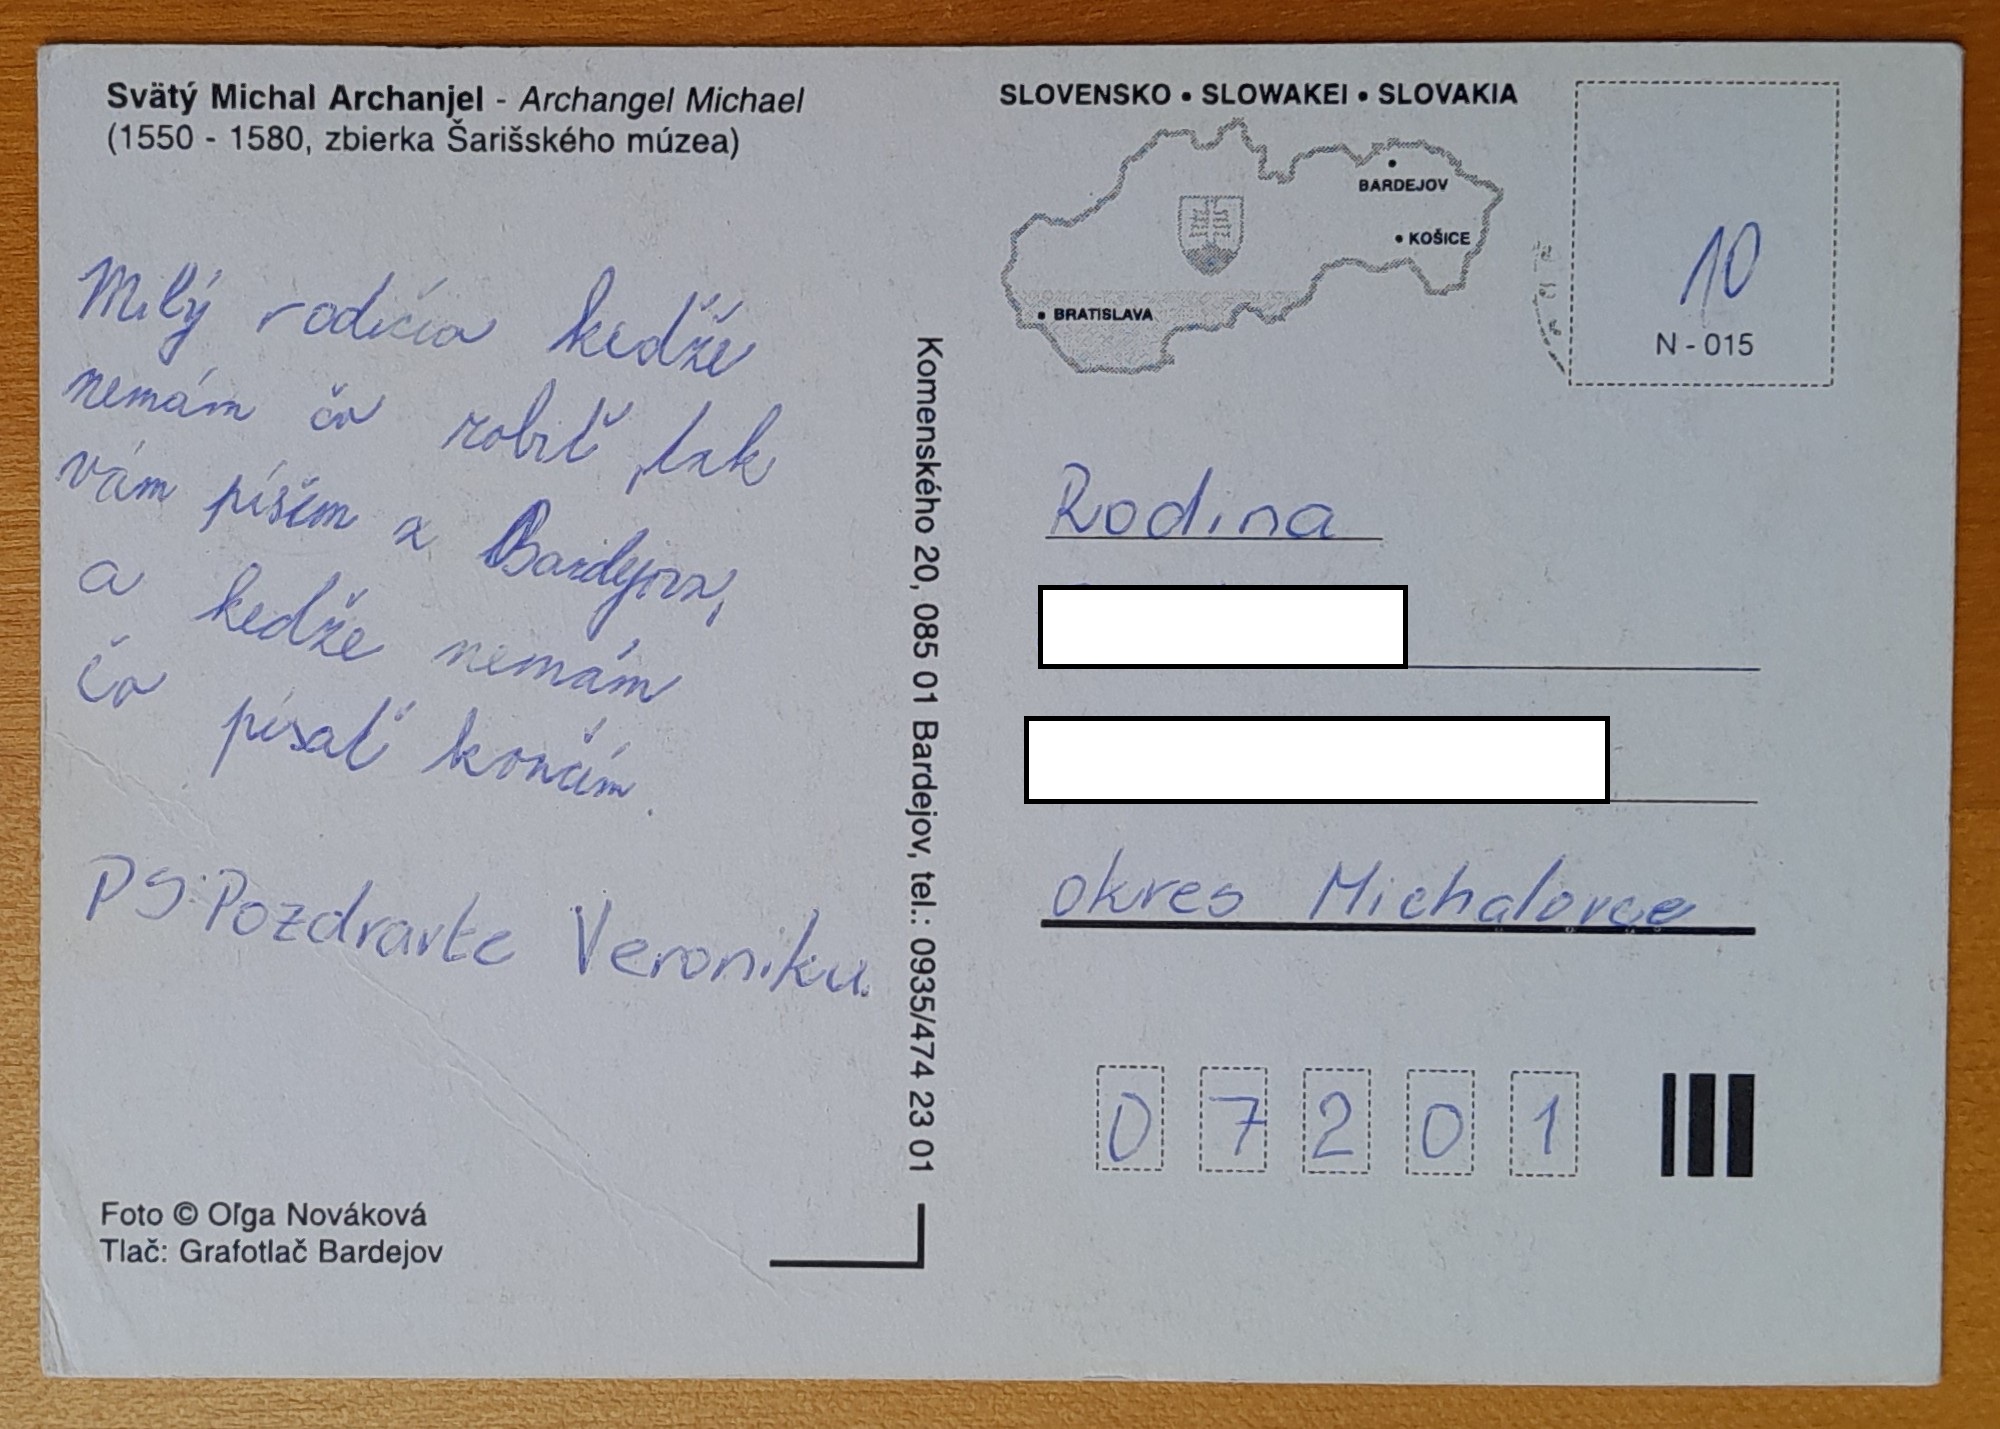 Svätý Michal Archanjel - Archangel Michael
(1550 - 1580, zbierka Šarišského múzea)
Milý rodičia kedže
nemám čo robiť, tak
vám píšem z Bardejova,
a kedže nemám
čo písať končím.
PS: Pozdravte Veroniku.
Foto © Oľga Nováková
Tlač: Grafotlač Bardejov
Komenského 20, 085 01 Bardejov, tel.: 0935/474 23 01
SLOVENSKO • SLOWAKEI • SLOVAKIA
BARDEJOV
KOŠICE
BRATISLAVA
10
N - 015
Rodina
okres Michalovce
07201